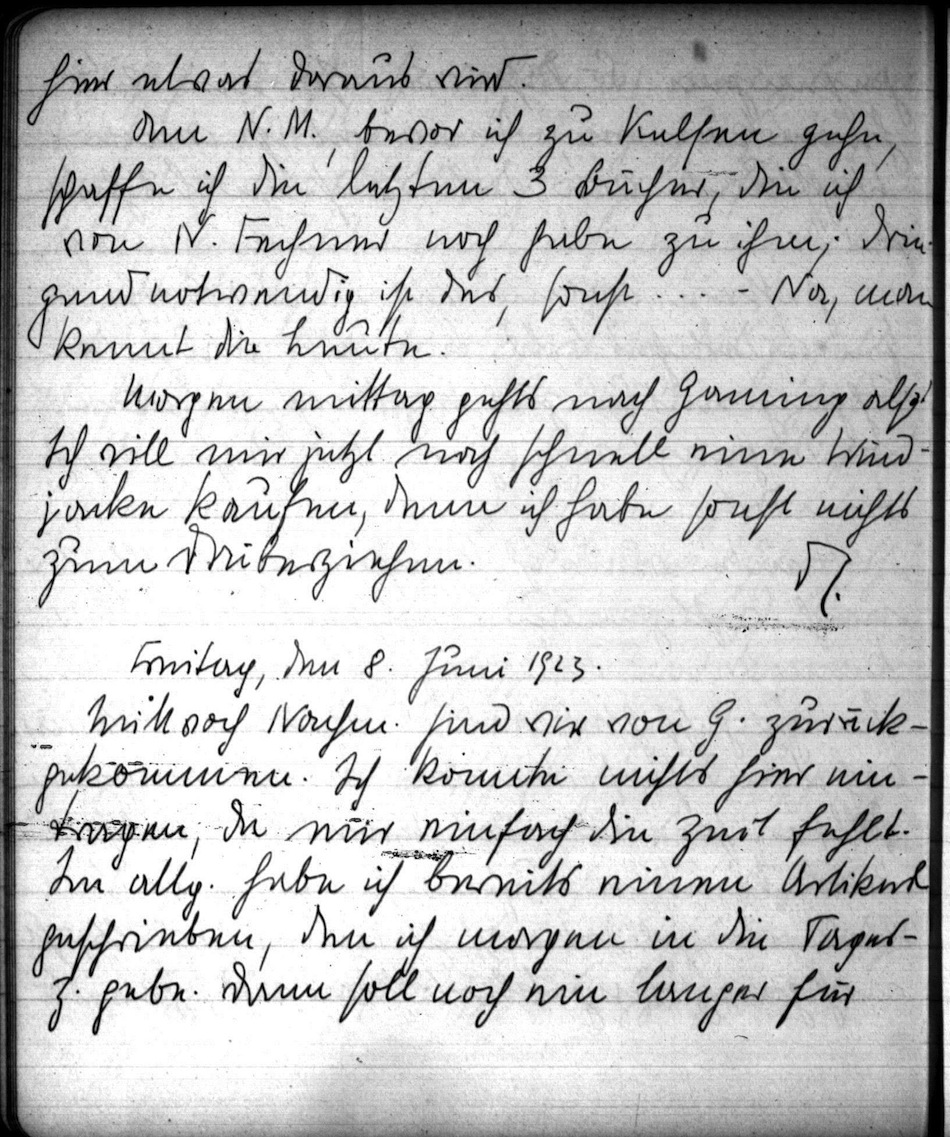 hier etwas daraus wird.
Den N. M., bevor ich zu Kulhen gehe,
schaffe ich die letzten 3 Bücher, die ich
von N. Fechner noch habe zu ihm; drin-
gend notwendig ist das, sonst ... - Na, man
kennt die Leute.
Morgen mittag gehts nach Gaming also!
Ich will mir jetzt noch schnell eine Wind-
jacke kaufen, denn ich habe sonst nichts
zum Drüberziehen.
Freitag, den 8. Juni 1923.
Mittwoch Nachm. sind wir von G. zurück-
gekommen. Ich konnte nichts hier ein-
tragen, da mir einfach die Zeit fehlt.
Im allg. habe ich bereits einen Artikerl
geschrieben, den ich morgen in die Tages-
z. gebe. Dann soll noch ein langer für